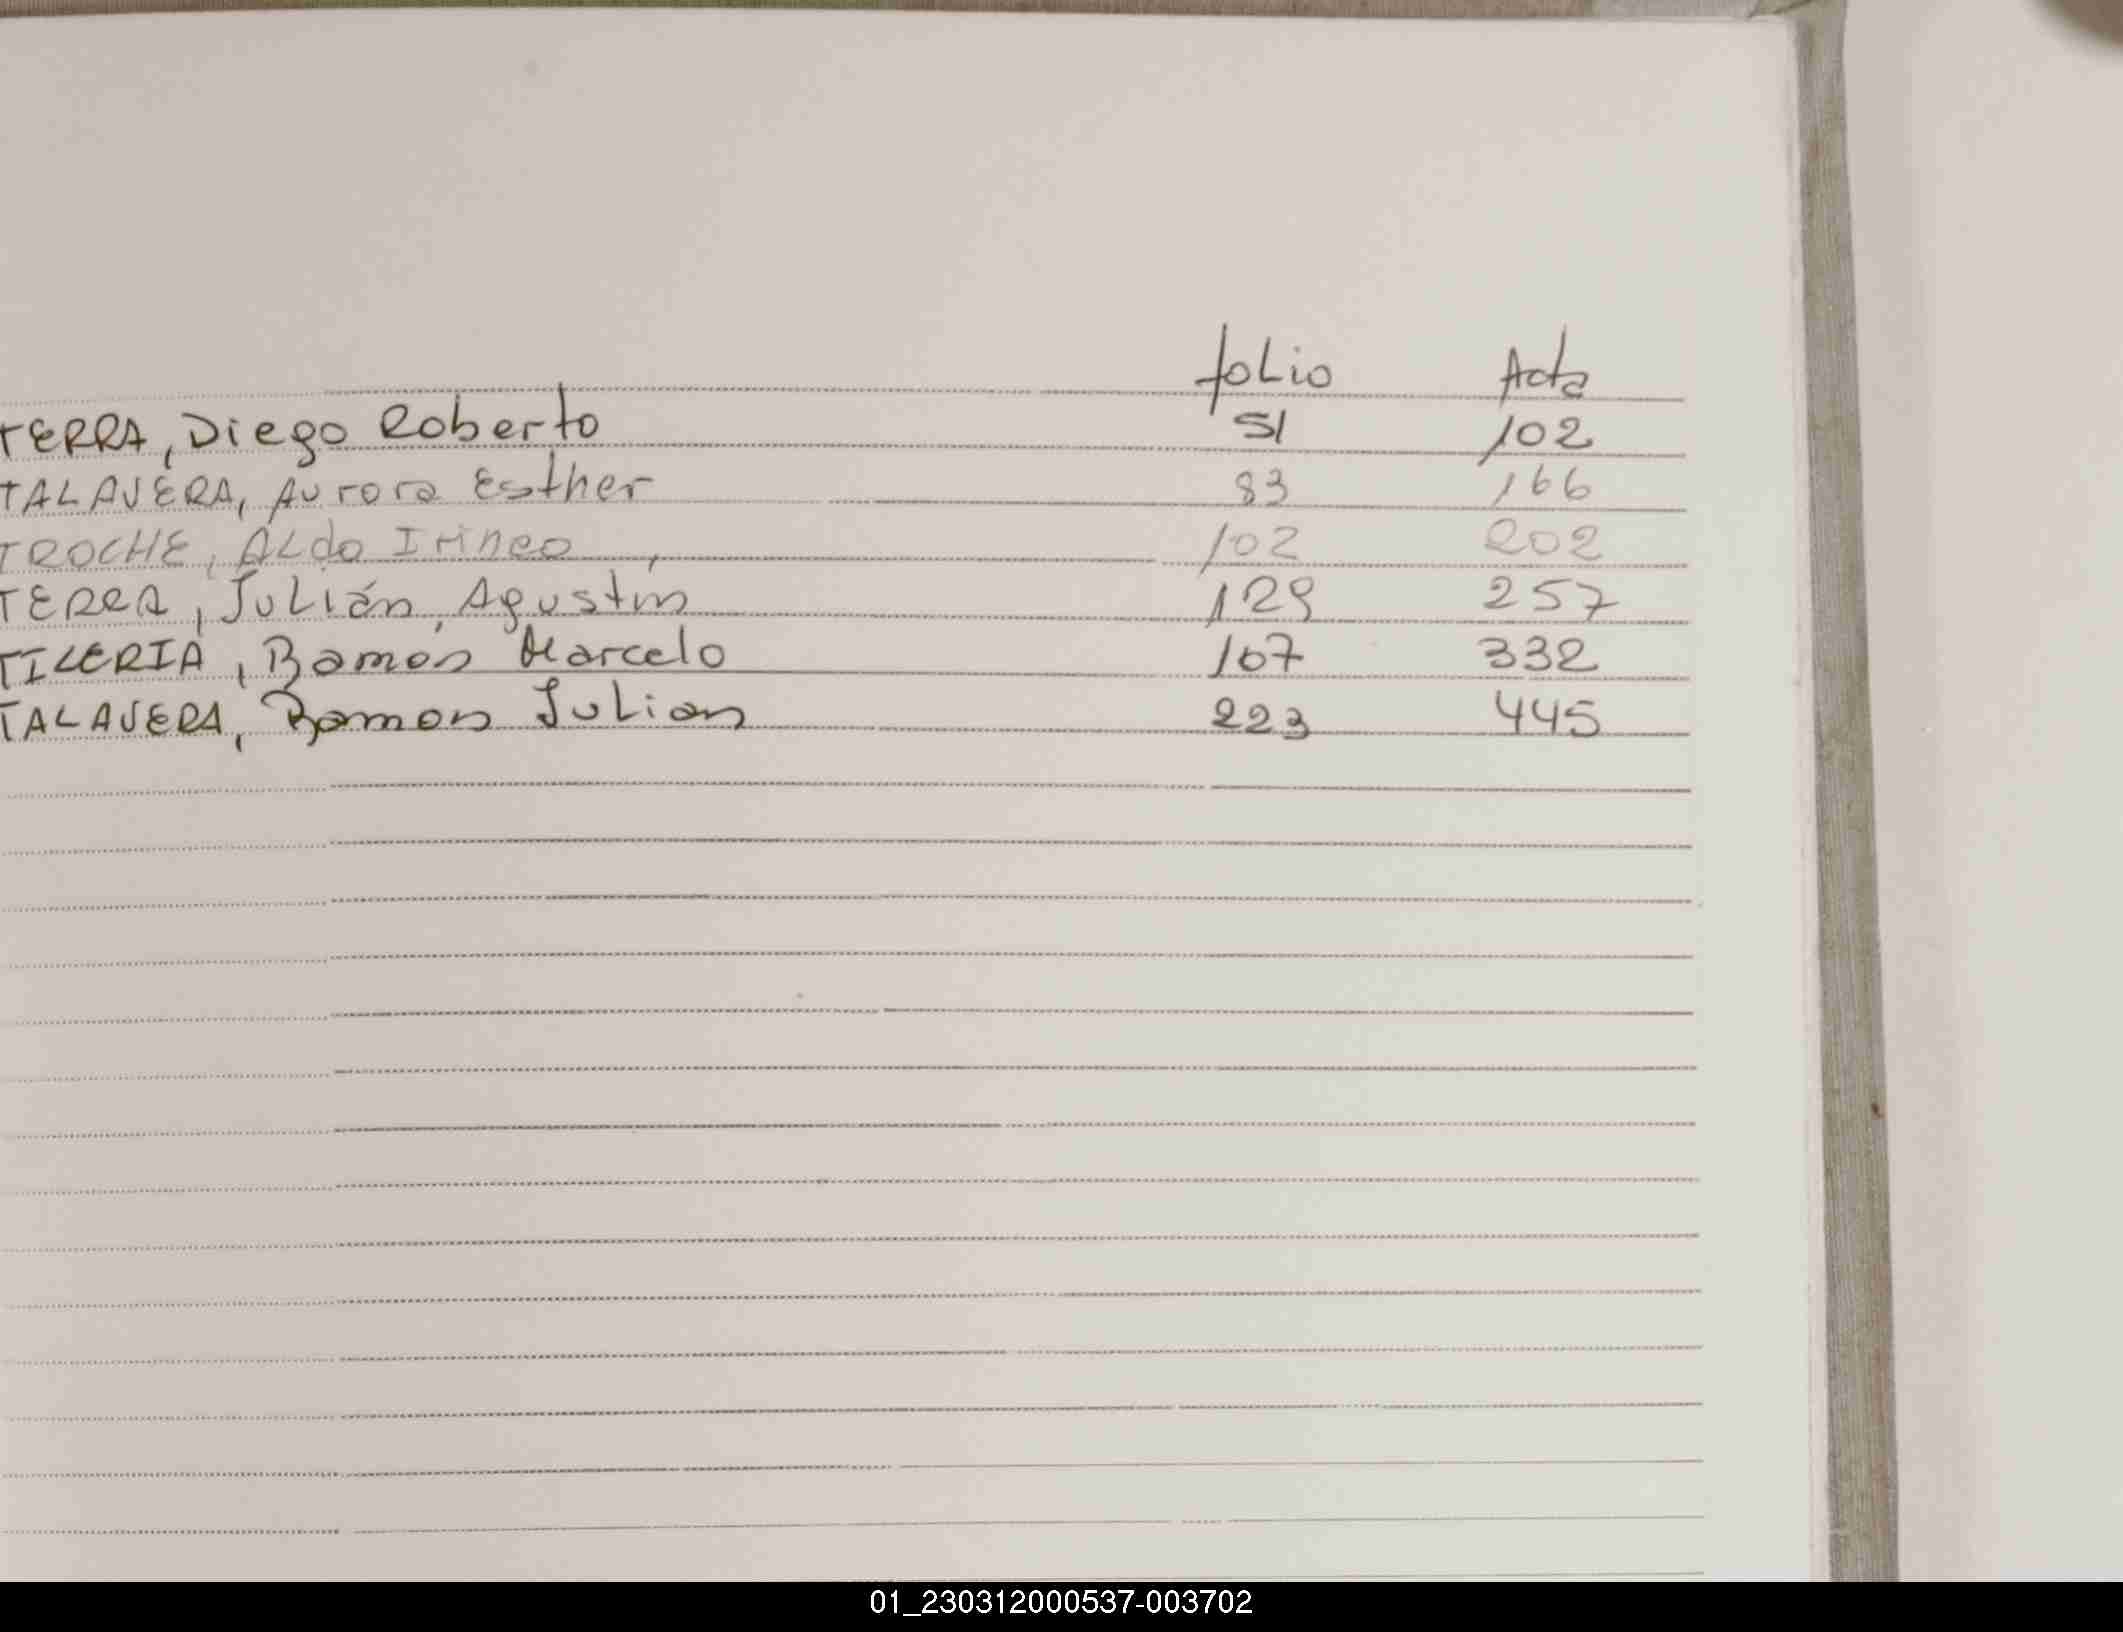 folio Acta
TERRA, Diego Roberto 51 102
TALAVERA, Aurora Esther 83 166
TROCHE, ALdo Irineo, 102 202
TERRA, JuLián, Agustin 129 257
TILERIA, Ramón Marcelo 167 332
TALAVERA, Ramon Julian 223 445
01_230312000537-003702